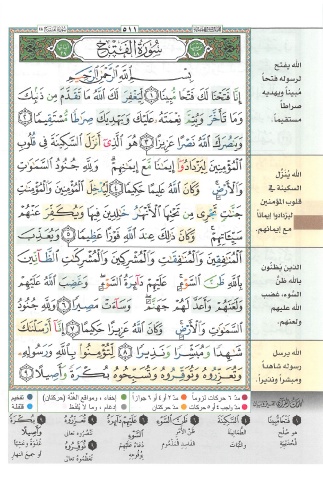 ٥١١
سُورَةُ الْفَتْحِ
بِسْمِ اللَّهِ الرَّحْمَٰنِ الرَّحِيمِ
إِنَّا فَتَحْنَا لَكَ فَتْحًا مُّبِينًا ١ لِّيَغْفِرَ لَكَ اللَّهُ مَا تَقَدَّمَ مِن ذَنبِكَ
وَمَا تَأَخَّرَ وَيُتِمَّ نِعْمَتَهُ عَلَيْكَ وَيَهْدِيَكَ صِرَاطًا مُّسْتَقِيمًا ٢
وَيَنصُرَكَ اللَّهُ نَصْرًا عَزِيزًا ٣ هُوَ الَّذِي أَنزَلَ السَّكِينَةَ فِي قُلُوبِ
الْمُؤْمِنِينَ لِيَزْدَادُوا إِيمَانًا مَّعَ إِيمَانِهِمْ وَلِلَّهِ جُنُودُ السَّمَاوَاتِ
وَالْأَرْضِ وَكَانَ اللَّهُ عَلِيمًا حَكِيمًا ٤ لِّيُدْخِلَ الْمُؤْمِنِينَ وَالْمُؤْمِنَاتِ
جَنَّاتٍ تَجْرِي مِن تَحْتِهَا الْأَنْهَارُ خَالِدِينَ فِيهَا وَيُكَفِّرَ عَنْهُمْ
سَيِّئَاتِهِمْ وَكَانَ ذَٰلِكَ عِندَ اللَّهِ فَوْزًا عَظِيمًا ٥ وَيُعَذِّبَ
الْمُنَافِقِينَ وَالْمُنَافِقَاتِ وَالْمُشْرِكِينَ وَالْمُشْرِكَاتِ الظَّانِّينَ
بِاللَّهِ ظَنَّ السَّوْءِ عَلَيْهِمْ دَائِرَةُ السَّوْءِ وَغَضِبَ اللَّهُ عَلَيْهِمْ
وَلَعَنَهُمْ وَأَعَدَّ لَهُمْ جَهَنَّمَ وَسَاءَتْ مَصِيرًا ٦ وَلِلَّهِ جُنُودُ
السَّمَاوَاتِ وَالْأَرْضِ وَكَانَ اللَّهُ عَزِيزًا حَكِيمًا ٧ إِنَّا أَرْسَلْنَاكَ
شَاهِدًا وَمُبَشِّرًا وَنَذِيرًا ٨ لِّتُؤْمِنُوا بِاللَّهِ وَرَسُولِهِ
وَتُعَزِّرُوهُ وَتُوَقِّرُوهُ وَتُسَبِّحُوهُ بُكْرَةً وَأَصِيلًا ٩
الله يفتح
لرسوله فتحاً
مبيناً ويهديه
صراطاً
مستقيماً.
الله يُنَزِّل
السكينة في
قلوب المؤمنين
ليزدادوا إيماناً
مع إيمانهم.
الذين يظنُّون
بالله ظنَّ
السّوء، غضب
الله عليهم
ولعنهم.
الله يرسل
رسوله شاهداً
ومبشراً ونذيراً.
مدّ ٦ حركات لزوماً
مدّ ٢ أو ٤ أو ٦ جوازاً
إخفاء، ومواقع الغُنَّة (حركتان)
تفخيم
مدّ واجب ٤ أو ٥ حركات
مدّ حركتان
إدغام، وما لا يُلفظ
قلقلة